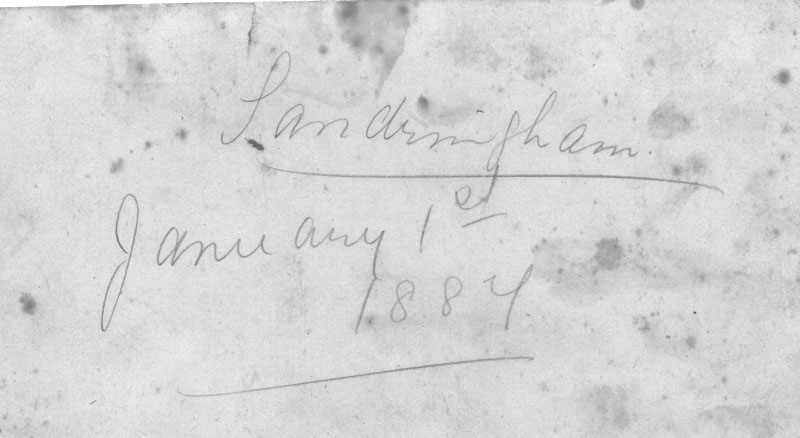 Sandringham.
January 1st
1884